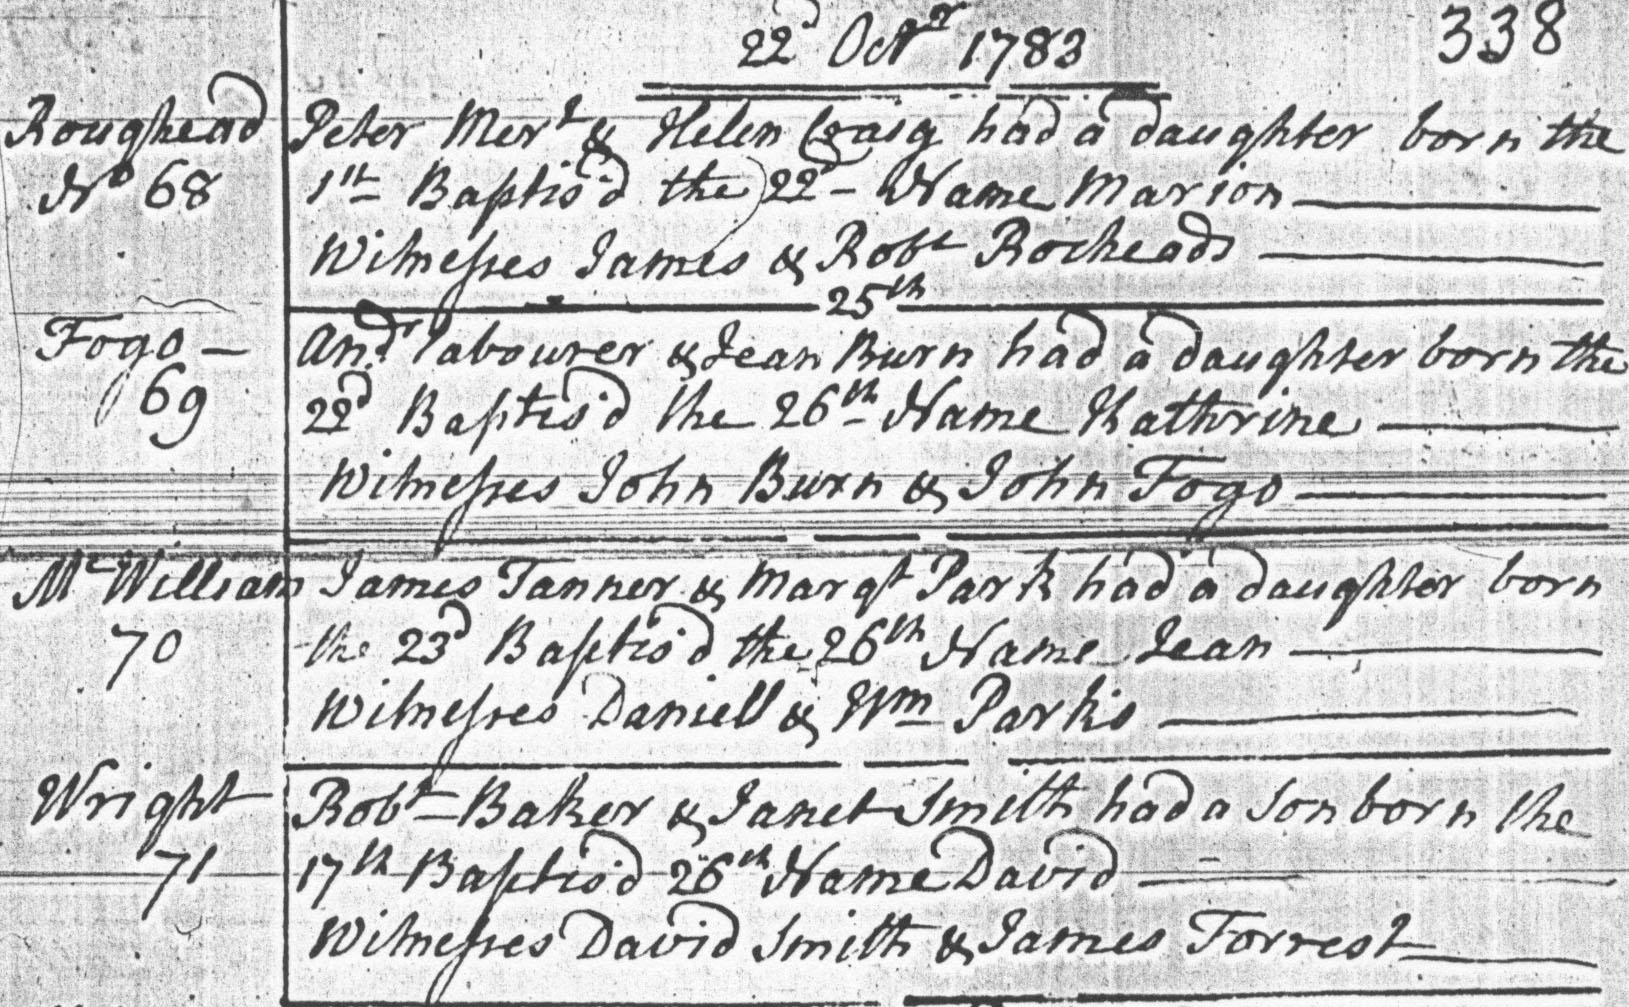 22d Octr 1783
338
Roughead
No 68
Peter Mert & Helen Craig had a daughter born the
1st Baptis'd the 22d Name Marion
Witnesses James & Robt Rocheads
25th
Fogo
69
Andr labourer & Jean Burn had a daughter born the
22d Baptis'd the 26th Name Kathrine
Witnesses John Burn & John Fogo
Mc William
70
James Tanner & Margt Park had a daughter born
the 23d Baptis'd the 26th Name Jean
Witnesses Daniell & Wm Parks
Wright
71
Robt Baker & Janet Smith had a son born the
17th Baptis'd 26th Name David
Witnesses David Smith & James Forrest